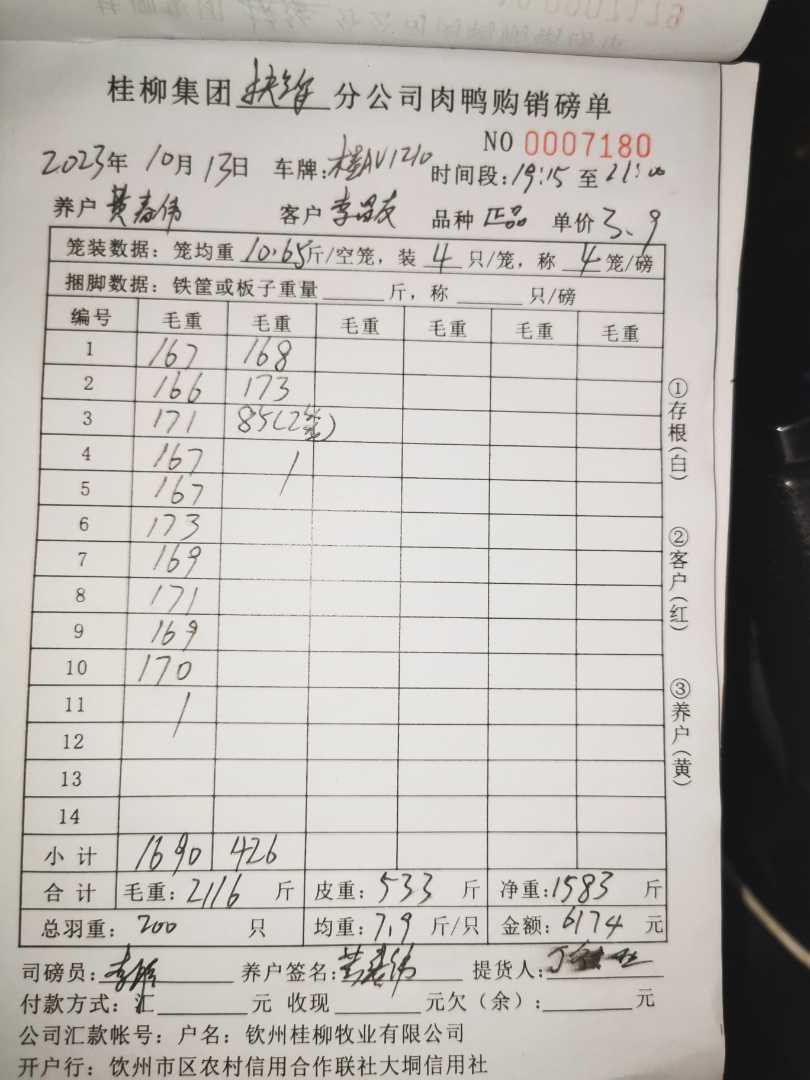 桂柳集团 扶绥 分公司肉鸭购销磅单
NO 0007180
2023年 10月 13日 车牌:桂AV1210 时间段:19:15 至 21:00
养户 黄春伟 客户 李昌友 品种 正品 单价 3.9
笼装数据:笼均重 10.65斤/空笼,装 4 只/笼,称 4 笼/磅
捆脚数据:铁筐或板子重量______斤,称______只/磅
编号 毛重 毛重 毛重 毛重 毛重 毛重
1 167 168
2 166 173
3 171 85(2笼)
4 167 /
5 167
6 173
7 169
8 171
9 169
10 170
11 /
12
13
14
小计 1690 426
合计 毛重:2116 斤 皮重:533 斤 净重:1583 斤
总羽重:200 只 均重:7.9 斤/只 金额:6174 元
司磅员: 养户签名:黄春伟 提货人:
付款方式:汇______元 收现______元欠(余):______元
公司汇款帐号:户名:钦州桂柳牧业有限公司
开户行:饮州市区农村信用合作联社大垌信用社
①存根(白)
②客户(红)
③养户(黄)